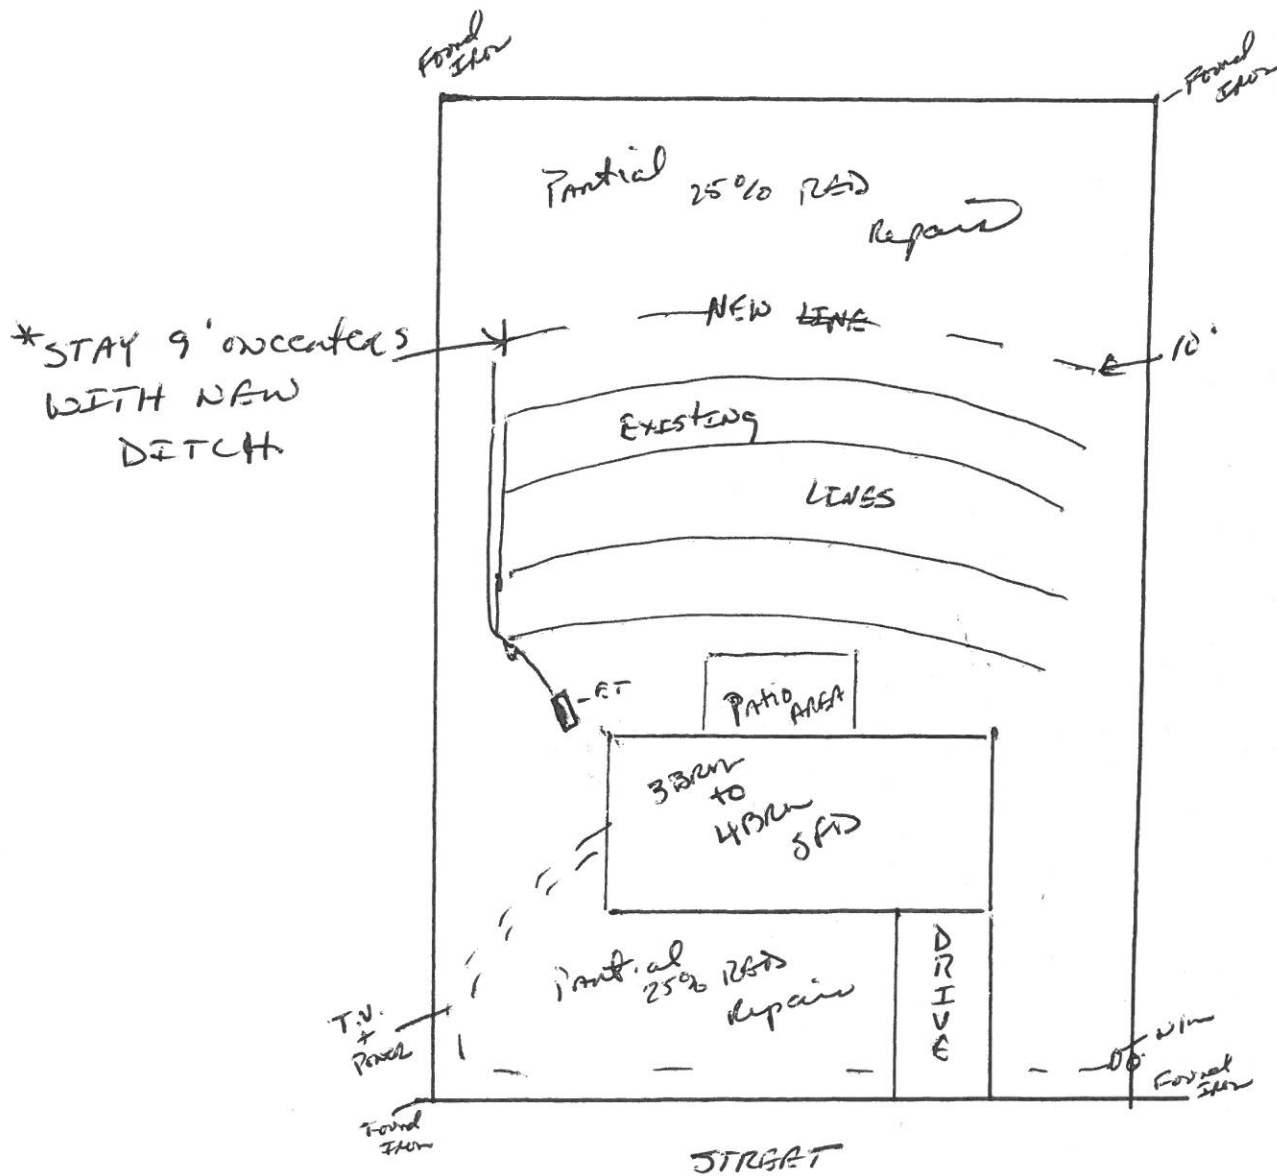 Found
Iron
Found
Iron
Partial 25% RED
Repair
NEW LINE
*STAY 9' ON CENTERS
WITH NEW
DITCH
10'
EXISTING
LINES
PATIO
AREA
3 BRM
to
4 BRM
SFD
Partial
25% RED
Repair
DRIVE
T.V.
+
POWER
Found
Iron
Found
Iron
STREET